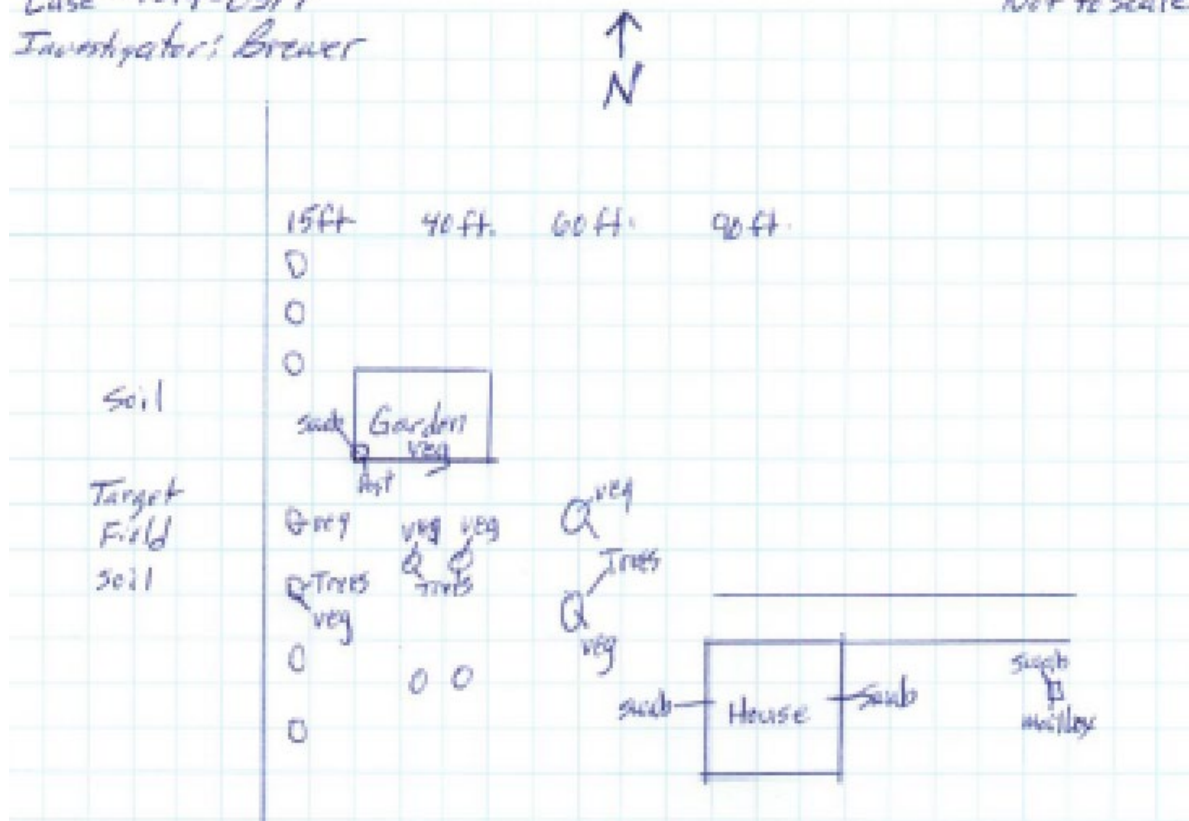 Case
Investigator: Brewer
Not to scale
N
15ft 40 ft. 60 ft. 90 ft.
Soil
Swab
Garden
veg
Post
Target
Field
Soil
veg
veg veg
veg
Trees
Trees
veg
Trees
veg
swab
House
Swab
swab
mailbox